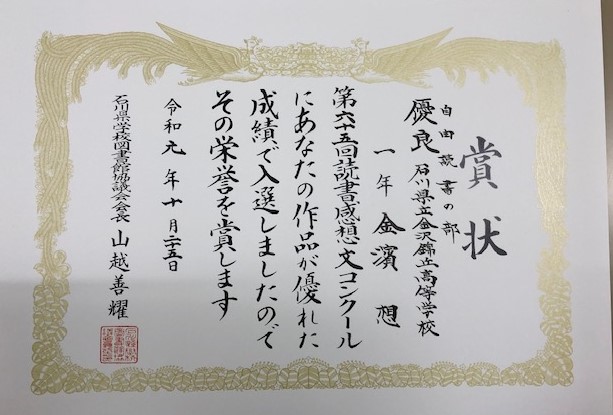 賞状
自由読書の部
優良 石川県立金沢錦丘高等学校
一年 金濱 想
第六十五回読書感想文コンクール
にあなたの作品が優れた
成績で入選しましたので
その栄誉を賞します
令和元年十月二十五日
石川県学校図書館協議会会長 山越善耀